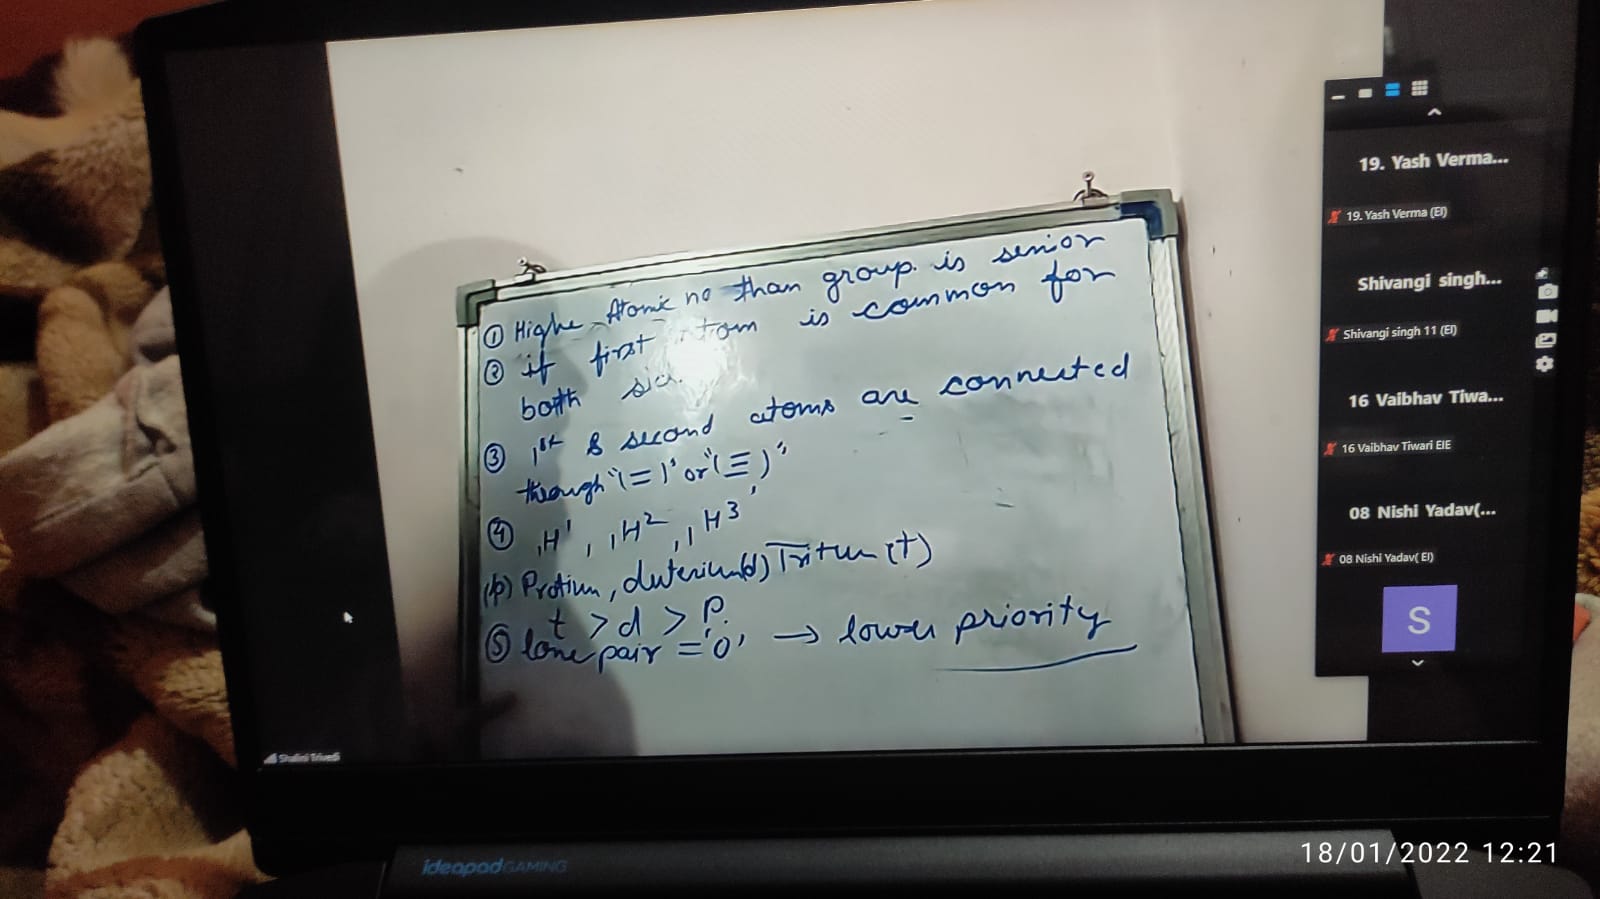 ① Highe Atomic no than group. is senior
② if first atom is common for
both sid
③ 1st & second atoms are connected
through "(=)" or "(≡)"
④ ₁H¹, ₁H², ₁H³
(p) Protium, duterium(d) Tritum (t)
t > d > p.
⑤ lone pair = '0' → lower priority
19. Yash Verma...
19. Yash Verma (EI)
Shivangi singh...
Shivangi singh 11 (EI)
16 Vaibhav Tiwa...
16 Vaibhav Tiwari EIE
08 Nishi Yadav(...
08 Nishi Yadav( EI)
S
Shalini Trivedi
ideapad GAMING
18/01/2022 12:21